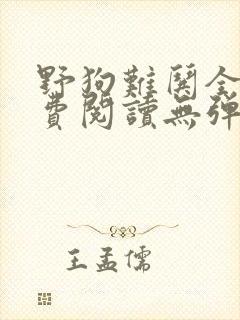 野狗難関全
費閱讀無彈
王孟儒